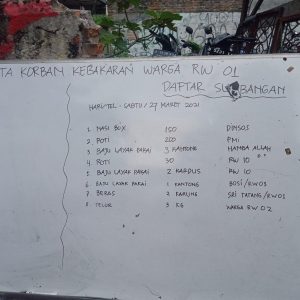 TA KORBAN KEBAKARAN WARGA RW 01
DAFTAR SUMBANGAN
HARI/TGL - SABTU / 27 MARET 2021
1. NASI BOX 150 DINSOS
2. ROTI 200 PMI
3. BAJU LAYAK PAKAI 3 KANTONG HAMBA ALLAH
4. ROTI 30 RW 10
5. BAJU LAYAK PAKAI 2 KARDUS RW 10
6. BAJU LAYAK PAKAI 1 KANTONG BOSI/RW05
7. BERAS 2 KARUNG SRI TATANG/RW05
8. TELUR 3 KG WARGA RW 02